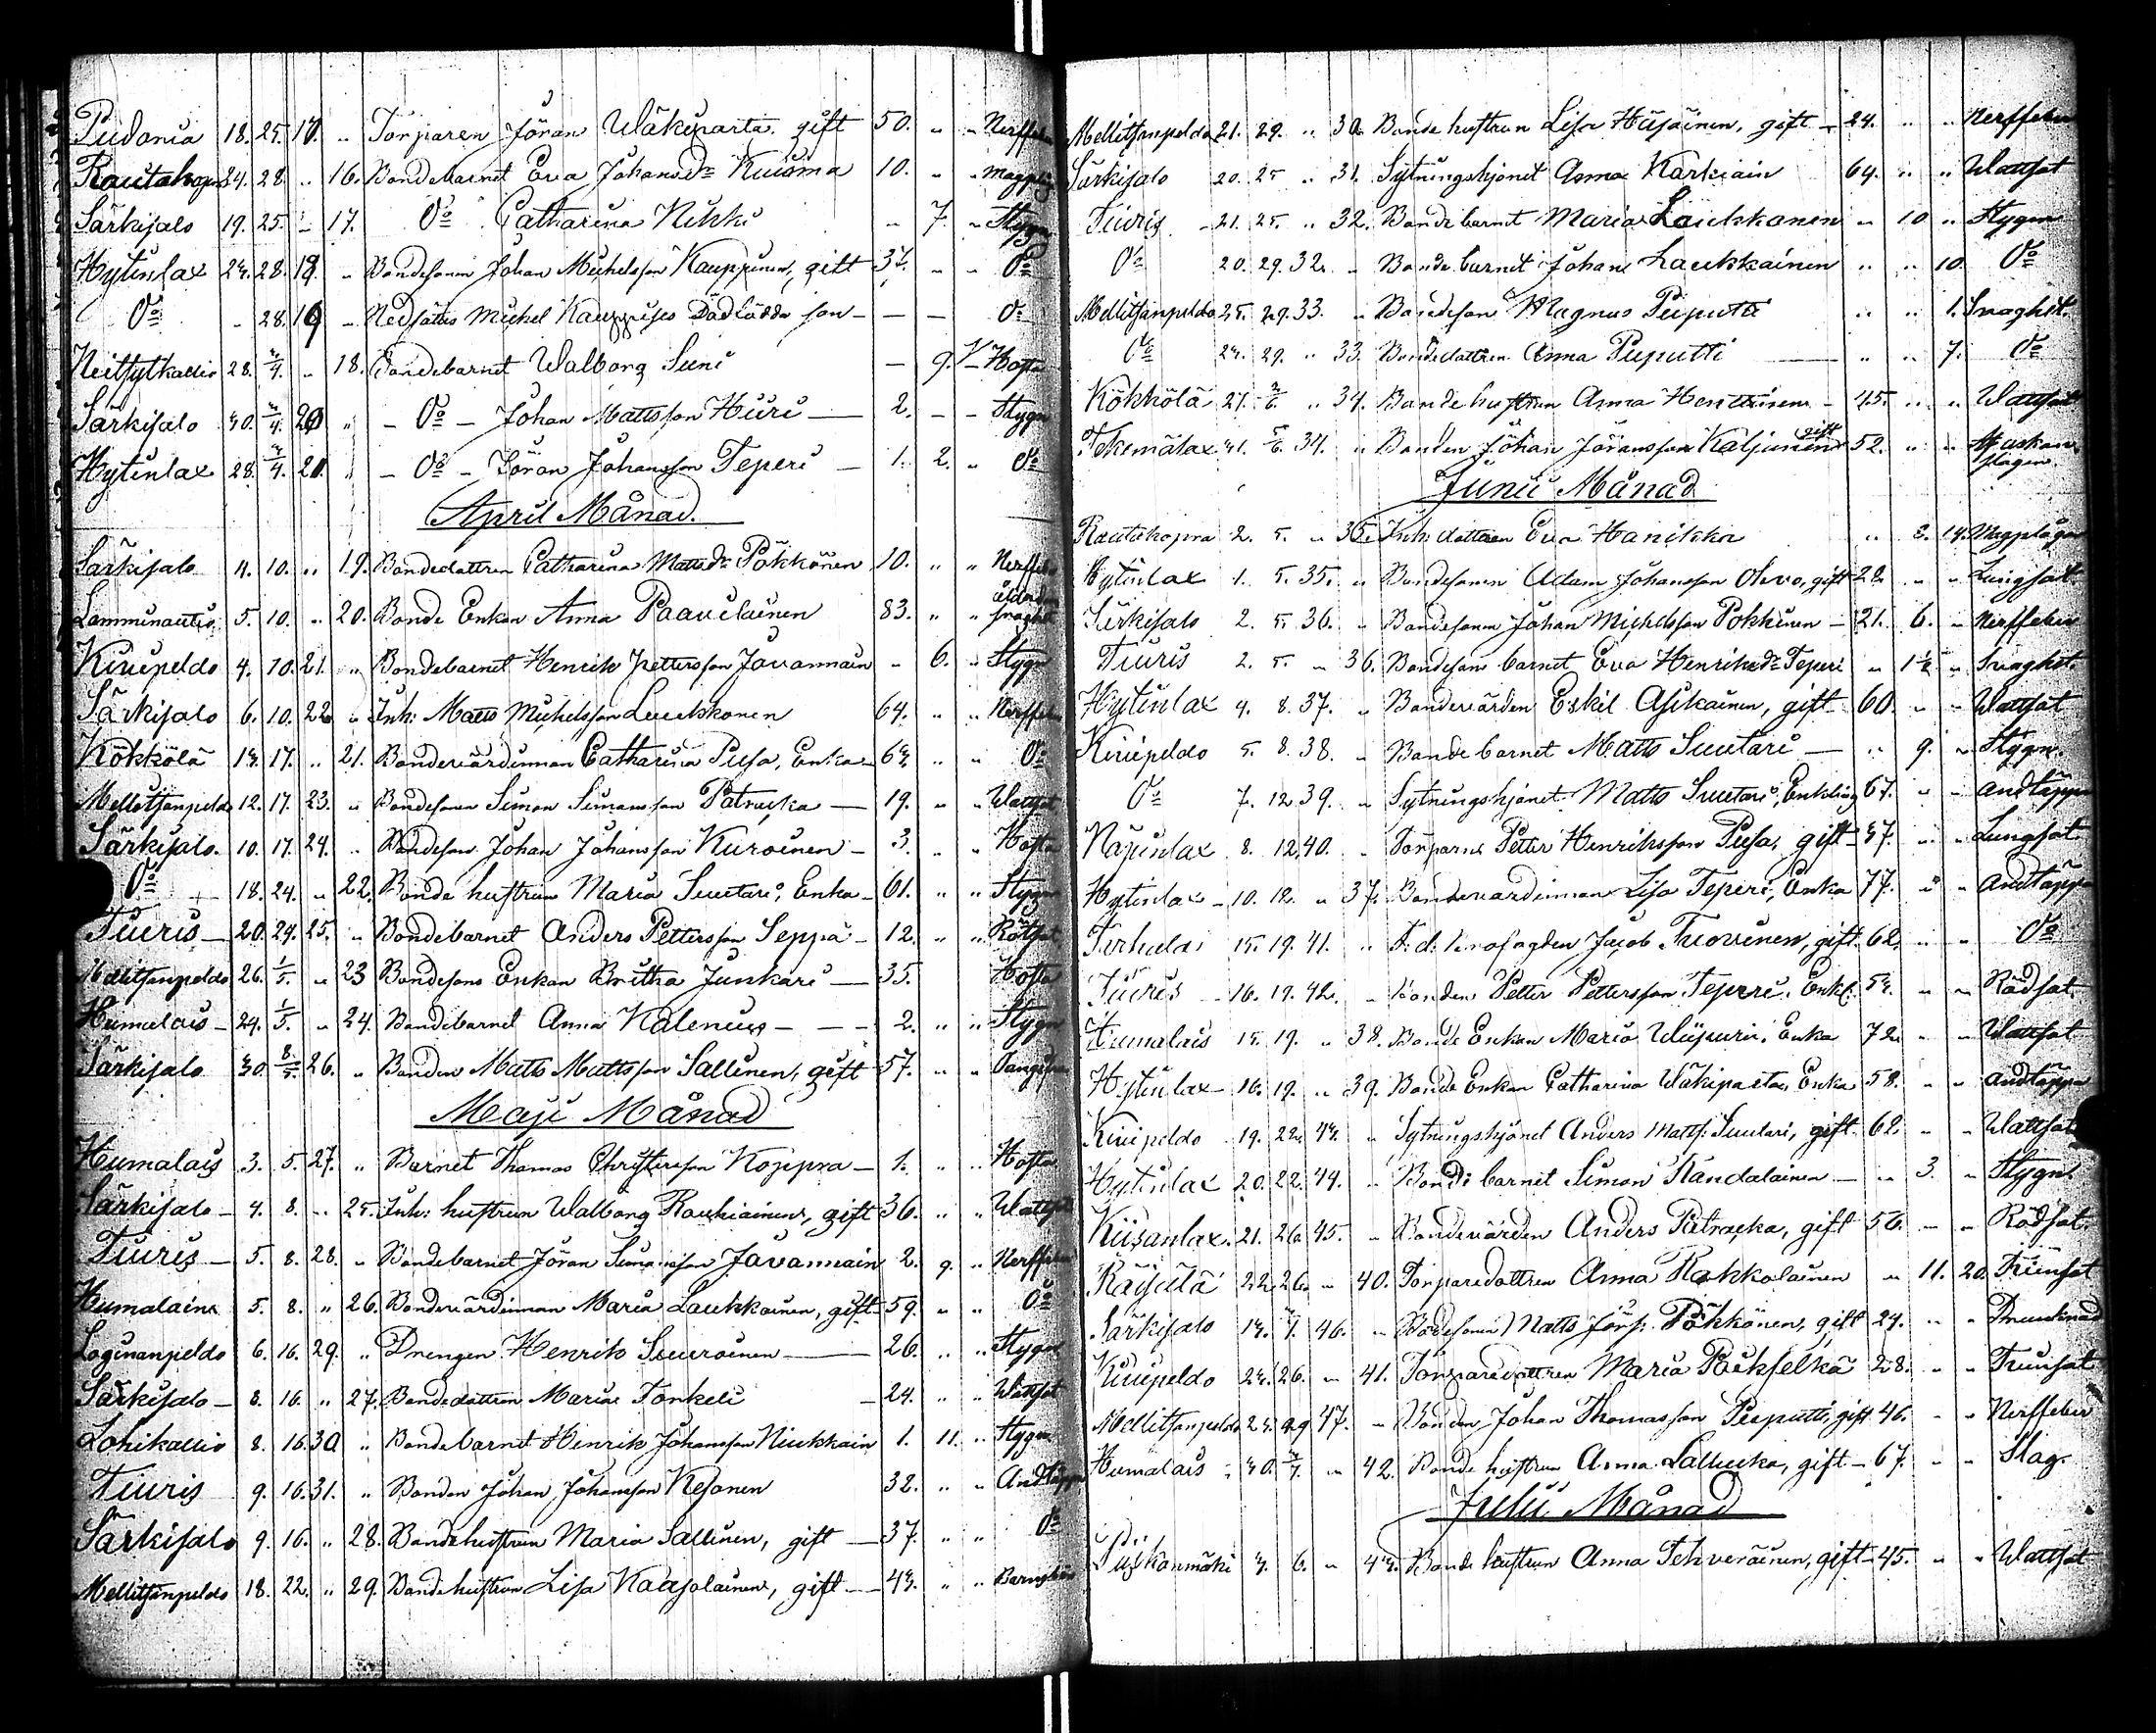 Pudoria 18. 25. 17. " Torparen Jöran Wäkiparta gift 50. " " Nerffeber
Rautakopra 24. 28. " 16. Bondebarnet Eva Johansdr Kuisma 10. " " Magplåg
Särkisalo 19. 25. " 17. Do Catharina Nikki " 7. " Stygn
Hytinlax 24. 28. 18. " Bondesonen Johan Michelsson Kauppinen, gift 37. " " Do
Do " 28. 19 " Michel Kauppises Dödfödda son — — Do
Neitsytkallio 28. 4. " 18. Bondebarnet Walborg Suni — 9. Hosta
Särkisalo 30. 4. 20 " Do Johan Mattsson Hüri — 2. — — Stygn
Hytinlax 28. 4. 20. " Do Jöran Johansson Teperi — 1. 2. " Do
April Månad.
Särkisalo 4. 10. " 19. Bondedottren Catharina Mattsdr Pökkönen 10. " " Nerffeber
Lamminautio 5. 10. " 20. Bonde Enkan Anna Paavilainen 83. " " ålderdoms svaghet
Kivipeldo 4. 10. 21. " Bondebarnet Henrik Pettersson Javannain " 6. " Stygn
Särkisalo 6. 10. 22 " Inh: Matts Michelsson Luukkonen 64. " " Nerffeber
Kökkölä 13. 17. " 21. Bondevärdinnan Catharina Pusa, Enka 63. " " Do
Mellitsänpeldo 12. 17. 23. " Bondesonen Simon Simonsson Patracka — 19. " " Wattsot
Särkisalo 10. 17. 24. " Bondeson Johan Johansson Kuroinen — 3. " " Hosta
Do 18. 24. " 22. Bonde hustrun Maria Suutari, Enka 61. " " Stygn
Tiuris — 20. 24. 25. " Bondebarnet Anders Pettersson Seppä 12. " " Rötsot
Mellitsänpeldo 26. 1/5. " 23 Bondesons Enkan Britha Junkari — 35. Hosta
Humalais — 24. 1/5. " 24. Bondebarnet Anna Kalenius — — — 2. " " Stygn
Särkisalo 30. 8/5. 26. " Bonden Matts Mattsson Sallinen, gift 57. " "
Maji Månad
Humalais 3. 5. 27. " Barnet Thomas Christersson Koppra — 1. " " Hosta
Särkisalo — 4. 8. " 25. Inh: hustrun Walborg Rauhiainen, gift 36. " " Wattsot
Tiuris — 5. 8. 28. " Bondebarnet Jöran Simonsson Javannain 2. 9. " Nerffeber
Humalais 5. 8. " 26. Bondevärdinnan Maria Laukkainen, gift 59. " " Do
Loginanpeldo 6. 16. 29. " Drengen Henrik Suuroinen — 26. " " Stygn
Särkisalo — 8. 16. " 27. Bondedottren Maria Tonkeli — 24. " " Wattsot
Lohikallio 8. 16. 30 " Bondebarnet Henrik Johansson Niukkain 1. 11. " Stygn
Tiuris 9. 16. 31. " Bonden Johan Johansson Kesonen 32. " " Andtäppa
Särkisalo 9. 16. " 28. Bondehustrun Maria Sallinen, gift — 37. " " Do
Mellitsänpeldo 18. 22. " 29. Bondehustrun Lisa Kaasolainen, gift — 43. " " Barnsbörd
Mellitsänpeldo 21. 29. " 30. Bonde hustrun Lisa Häsäinen, gift — 24. " " Nerffeber
Särkisalo 20. 25 " 31. Sytningshjonet Anna Karkiain 64. " " Wattsot
Tiuris 21. 25. " 32. Bondebarnet Maria Laukkonen " 10 " Stygn
Do 20. 29. 32. " Bondebarnet Johan Laukkainen " " 10. Do
Mellitsänpeldo 25. 29. 33. " Bondeson Magnus Piiputti " " 1. Svaghet.
Do 24. 29. " 33. Bondedottren Anna Puputti — " " 7. Do
Kökkölä 21. 2/6. " 34. Bonde hustrun Anna Henttinen — 45. " " Wattsot
31. 5/6. 34. " Bonden Johan Jöransson Kaljunen gift 52. " "
Junii Månad
Rautakopra 2. 5. " 35. Inh: dottren Eva Hanikka " 3. 14. Magplågor
Hytinlax 1. 5. 35. " Bondesonen Adam Johansson Olavo, gift 22 " " Lungsot
Särkisalo 2. 5. 36. " Bondesonen Johan Michelsson Pokkinen — 21. 6. " Nerffeber
Tiuris 2. 5. " 36. Bondesons barnet Eva Henriksdr Teperi " 1½ " Svaghet.
Hytinlax 4. 8. 37. " Bondevärden Eskil Asikainen, gift 60. " " Wattsot
Kivipeldo 5. 8. 38. " Bonde barnet Matts Suutari — " 9. " Stygn.
Do 7. 12 39. " Sytningshjonet Matts Suutari, Enkling 67. " " andtäppa
Näpinlax 8. 12. 40. " Torparen Petter Henriksson Pusa, gift 37. " " Lungsot
Hytinlax — 10. 12. " 37. Bondevärdinnan Lisa Teperi, Enka 77. " " Andtäppa
Terhula 15. 19. 41. " F: d: Krofogden Jacob Tuovinen, gift 62. " " Do
Tiuris — 16. 19. 42. " Bonden Petter Pettersson Teperi, Enkl. 53. " " Rödsot
Humalais 15. 19. " 38. Bonde Enkan Maria Wiipuri, Enka 72. " " Wattsot
Hytinlax — 16. 19. " 39. Bonde Enkan Catharina Wäkiparta, Enka 58. " " andtäppa
Kivipeldo 19. 22. 43. " Sytningshjonet Anders Matts: Suutari, gift 62. " " Wattsot
Hytinlax 20. 22. 44. " Bonde barnet Simon Kandalainen — " 3. " Stygn
Kiisanlax. 21. 26. 45. " Bondevärden Anders Patracka, gift 56 — " Rödsot.
Räisälä 22. 26. " 40. Torparedottren Anna Rokkolainen " 11. 20. Trånsot
Särkisalo 13. 3/7. 46. " Bondesonen Matts Förs: Pökkönen, gift 24. " " Drunknad
Kivipeldo 23. 26. " 41. Torparedottren Maria Paikselkä 28. " " Trånsot
Mellitsänpeldo 23. 29 47. " Bonden Johan Thomasson Piiputti, gift 46. " " Nerffeber
Humalais " 30. 3/7. " 42. Bonde hustrun Anna Lallukka, gift — 67. " " Slag.
Julii Månad
3. 6. " 43. Bonde hustrun Anna Tehveräinen, gift — 45. " " Wattsot